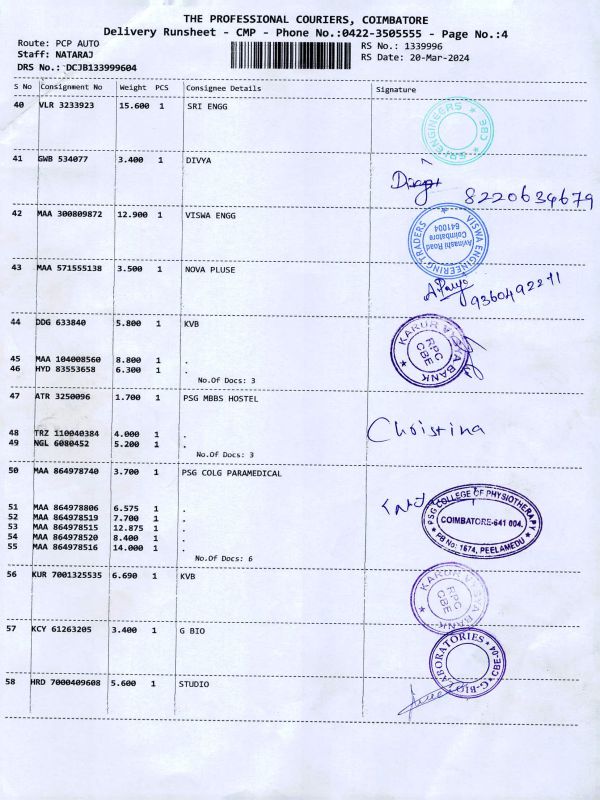 THE PROFESSIONAL COURIERS, COIMBATORE
Delivery Runsheet - CMP - Phone No.:0422-3505555 - Page No.:4
Route: PCP AUTO RS No.: 1339996
Staff: NATARAJ RS Date: 20-Mar-2024
DRS No.: DCJB133999604
S No Consignment No Weight PCS Consignee Details Signature
40 VLR 3233923 15.600 1 SRI ENGG
SRI ENGINEERS CBE
41 GWB 534077 3.400 1 DIVYA
8220634679
42 MAA 300809872 12.900 1 VISWA ENGG
VISWA ENGINEERING TRADERS
Avinashi Road
Coimbatore
641004
43 MAA 571555138 3.500 1 NOVA PLUSE
9360492211
44 DDG 633840 5.800 1 KVB
KARUR VYSYA BANK
RPC
CBE
45 MAA 104008560 8.800 1 .
46 HYD 83553658 6.300 1 .
No.Of Docs: 3
47 ATR 3250096 1.700 1 PSG MBBS HOSTEL
Christina
48 TRZ 110040384 4.000 1 .
49 NGL 6080452 5.200 1 .
No.Of Docs: 3
50 MAA 864978740 3.700 1 PSG COLG PARAMEDICAL
PSG COLLEGE OF PHYSIOTHERAPY
COIMBATORE-641 004.
PB No: 1674, PEELAMEDU
51 MAA 864978806 6.575 1 .
52 MAA 864978519 7.700 1 .
53 MAA 864978515 12.875 1 .
54 MAA 864978520 8.400 1 .
55 MAA 864978516 14.000 1 .
No.Of Docs: 6
56 KUR 7001325535 6.690 1 KVB
KARUR VYSYA BANK
RPC
CBE
57 KCY 61263205 3.400 1 G BIO
G-BIO LABORATORIES CBE-04
58 HRD 7000409608 5.600 1 STUDIO